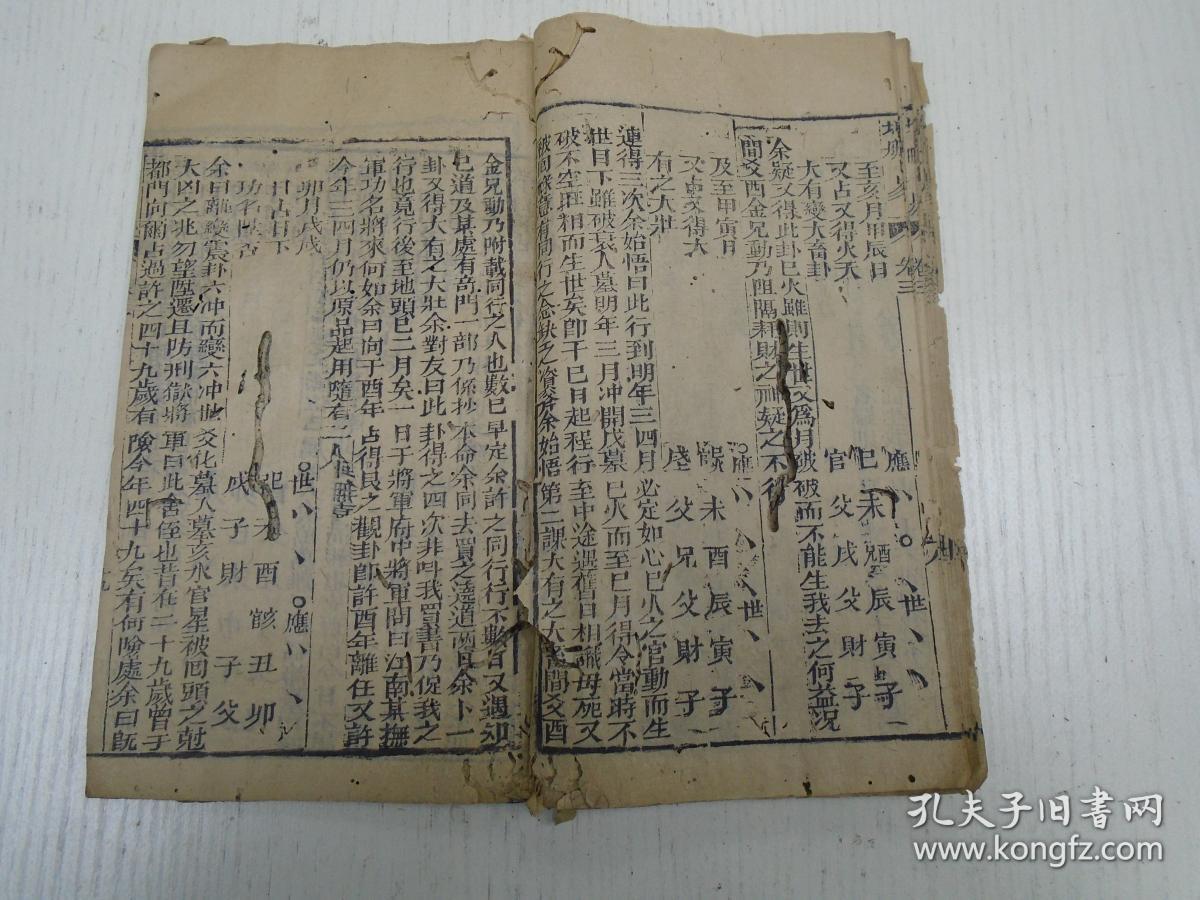 增刪卜易 卷三
至亥月甲辰日
又占又得火天
大有變大畜卦
應 世
巳 未 酉 辰 寅 子
官 父 兄 父 財 子
余疑又得此卦巳火雖則生世爻爲月破破而不能生我去之何益況
間爻酉金兄動乃阻隔耗財之神疑之不行
及至甲寅日
又占又得大
有之大壯
應 世
未 酉 辰 寅 子
父 兄 父 財 子
連得三次余始悟曰此行到明年三四月必定如心巳火之官動而生
世目下雖破衰入墓明年三月冲開戌墓巳火而至巳月得令當時不
破不空旺相而生世矣卽于巳日起程行至中途遇舊日相識毋死又
有同行之念缺乏資斧余始悟第二課大有之大畜間爻酉
金兄動乃附載同行之人也數已早定余許之同行行不數日又遇知
已道及某處有奇門一部乃係抄本命余同去買之遶道兩日余卜一
卦又得大有之大壯余對友曰此卦得之四次非叫我買書乃促我之
行也竟行後至地頭已二月矣一日于將軍府中將軍問曰江南某撫
軍功名將來何如余曰向于酉年占得艮之觀卦卽許酉年離任又許
今年三四月仍以原品起用隨有二人
卯月戊戌
日占目下
世 應
巳 未 酉 亥 丑 卯
戌 子 財 官 子 父
余曰離變震卦六冲而變六冲世爻化墓入墓亥水官星被回頭之尅
大凶之兆勿望陞遷且防刑獄將軍曰此舍侄也昔在二十九歲曾于
都門向爾占過許之四十九歲有險今年四十九矣有何險處余曰旣
九
孔夫子旧书网
www.kongfz.com